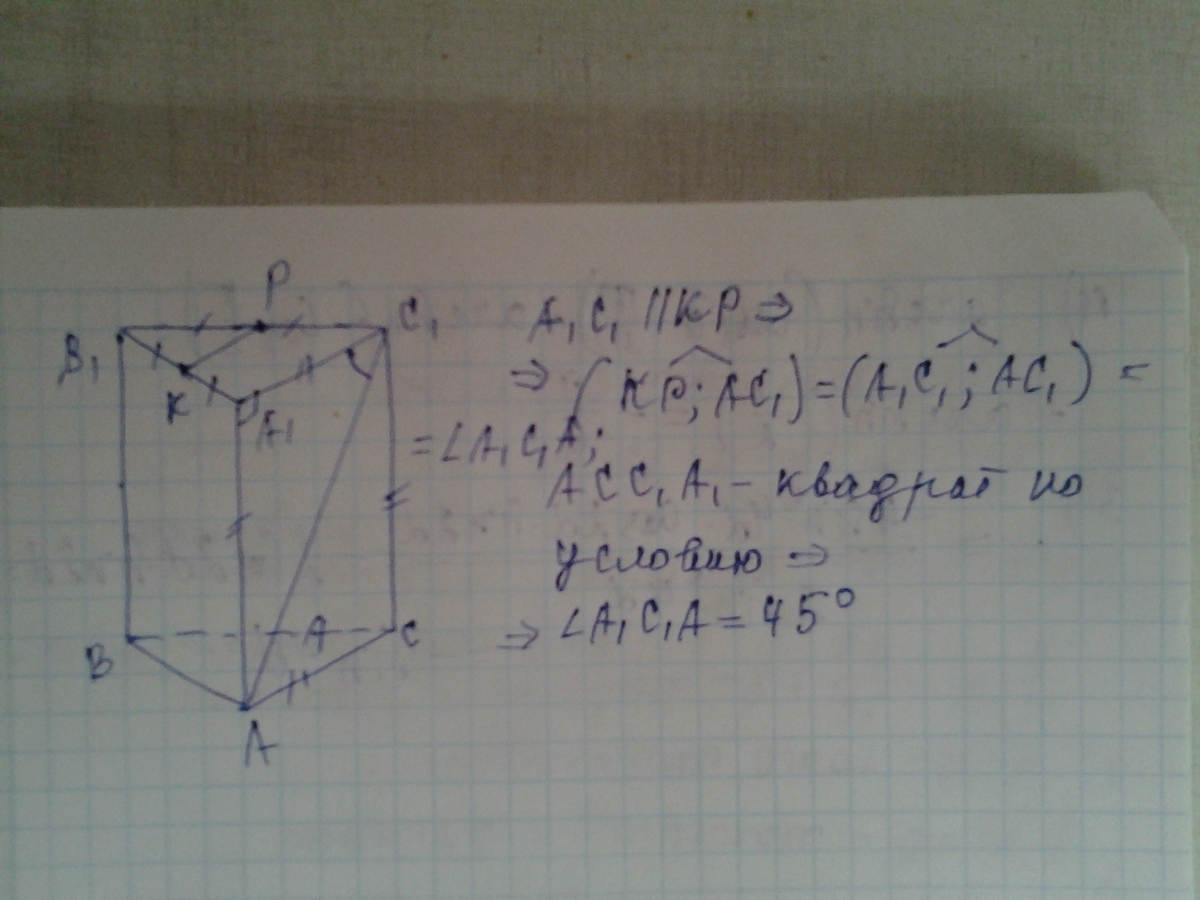 P
B₁
C₁
K
A₁
B
C
A
A₁C₁ || KP ⇒
⇒ (KP; AC₁) = (A₁C₁; AC₁) =
= ∠A₁C₁A;
ACC₁A₁ - квадрат по
условию ⇒
⇒ ∠A₁C₁A = 45°